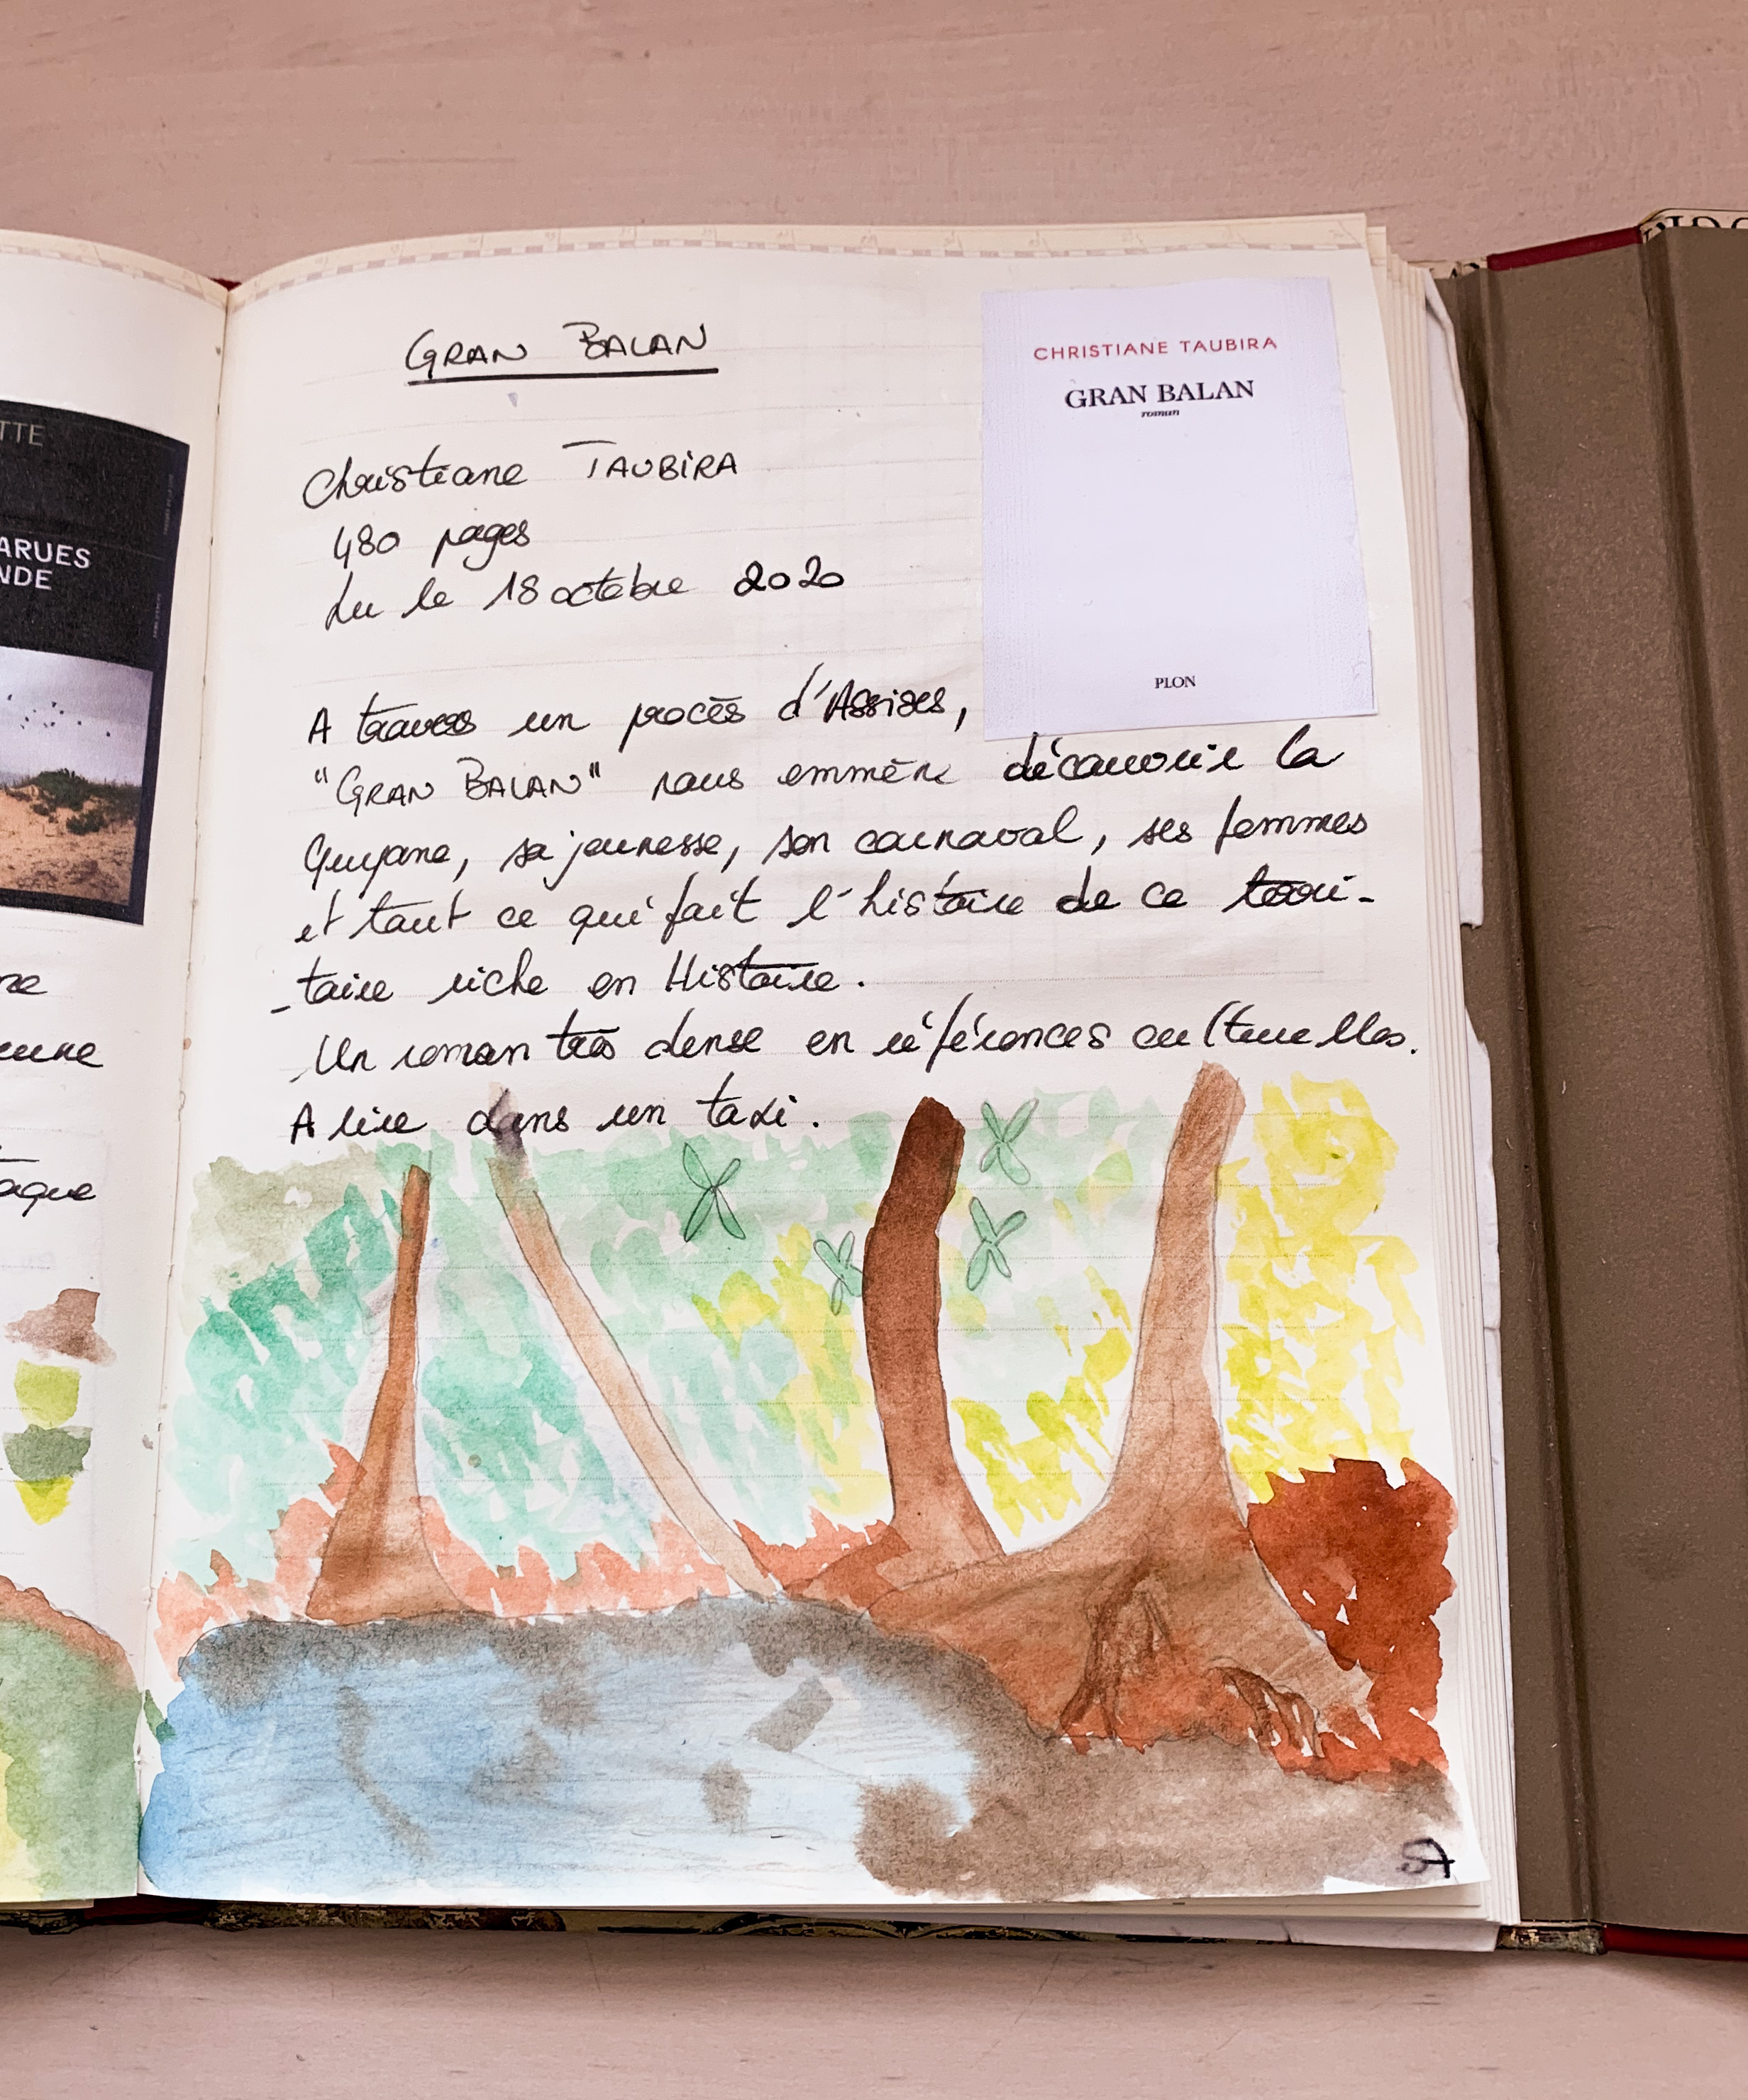 TTE
ARUES
NDE
ne
eune
aque
GRAN BALAN
Christiane TAUBIRA
480 pages
Lu le 18 octobre 2020
A travers un procès d'Assises,
"GRAN BALAN" nous emmène découvrir la
Guyane, sa jeunesse, son carnaval, ses femmes
et tout ce qui fait l'histoire de ce terri-
-toire riche en Histoire.
Un roman très dense en références culturelles.
A lire dans un taxi.
CHRISTIANE TAUBIRA
GRAN BALAN
roman
PLON
SA